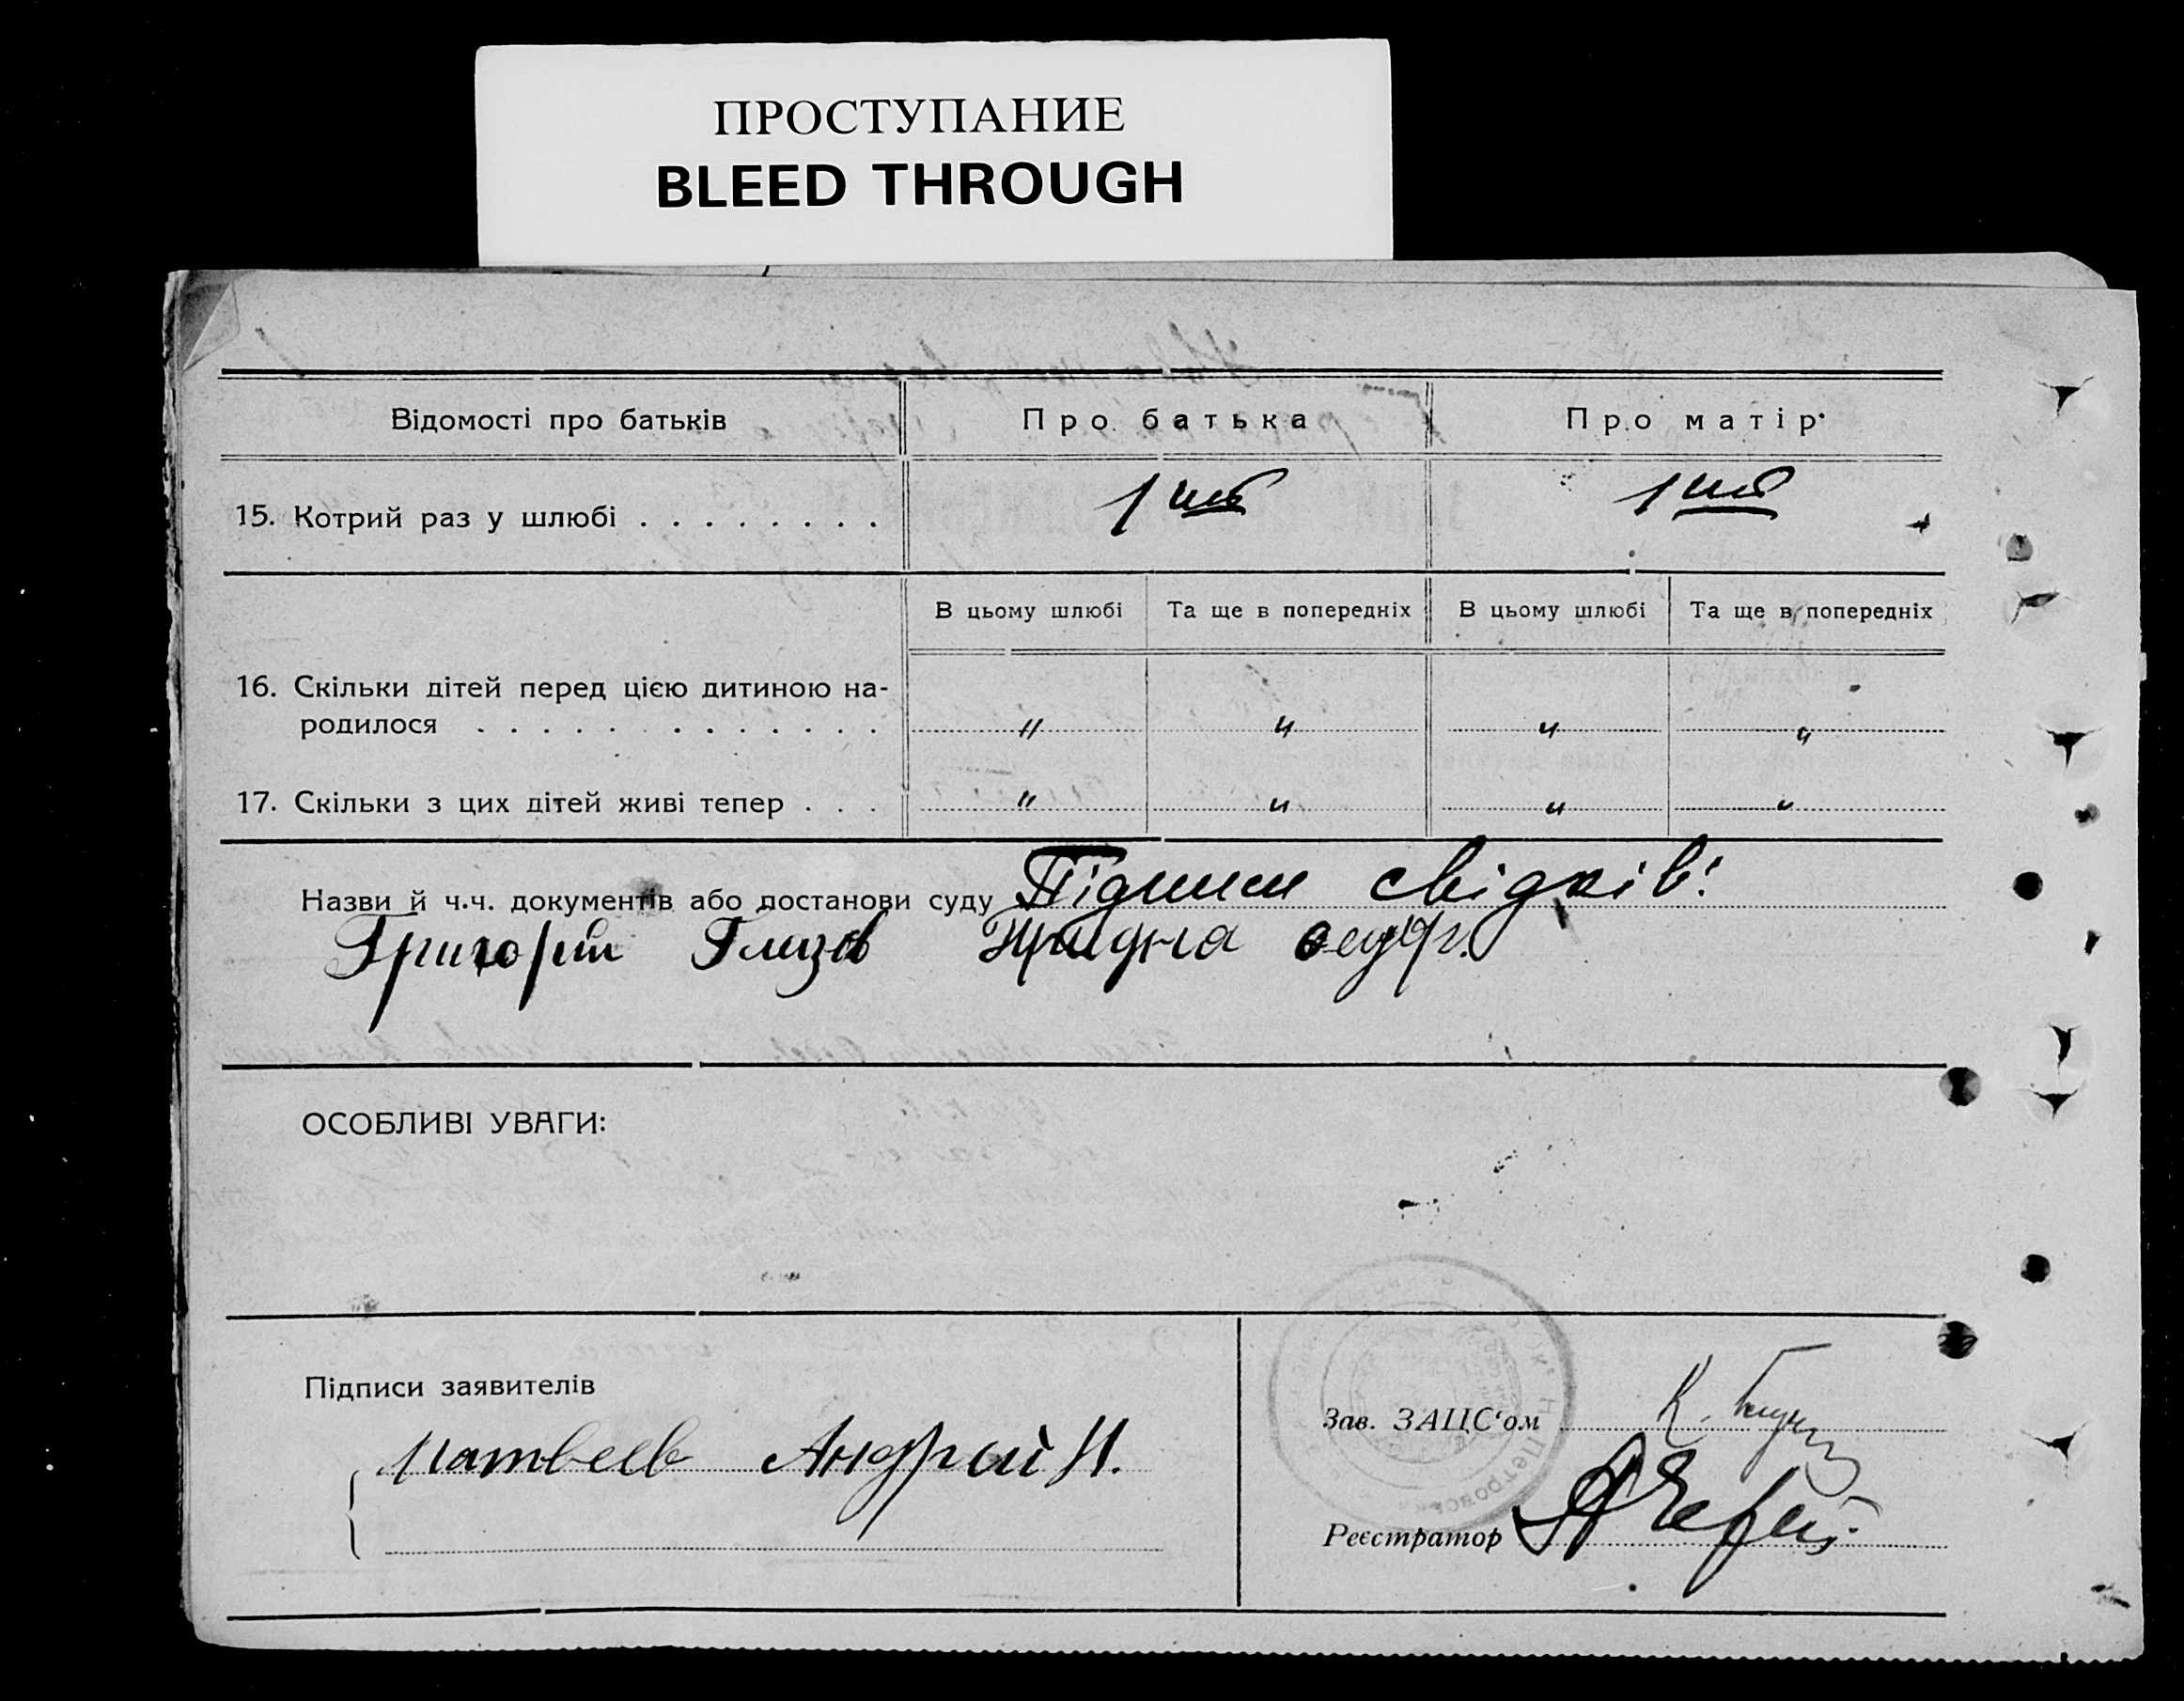 ПРОСТУПАНИЕ
BLEED THROUGH
Відомості про батьків
Про батька
Про матір
15. Котрий раз у шлюбі . . . . . . . .
1 шлб
1 шлб
В цьому шлюбі
Та ще в попередніх
В цьому шлюбі
Та ще в попередніх
16. Скільки дітей перед цією дитиною на-
родилося . . . . . . . . . . . . .
" " " "
17. Скільки з цих дітей живі тепер . . .
" " " "
Назви й ч.ч. документів або постанови суду Підписи свідків:
Григорій
ОСОБЛИВІ УВАГИ:
Підписи заявителів
Матвеев Андрей И.
Зав. ЗАЦС‘ом К.
Реєстратор
Петровськ